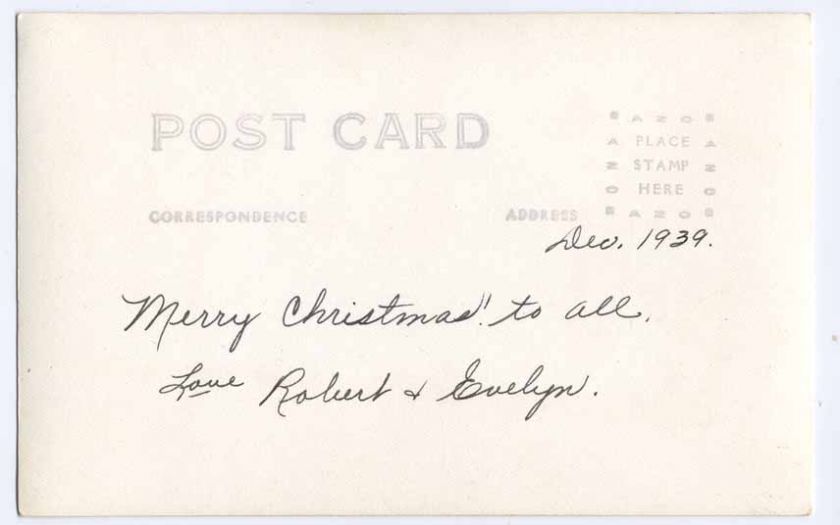 POST CARD
AZO
A PLACE A
Z STAMP Z
O HERE O
AZO
CORRESPONDENCE
ADDRESS
Dec. 1939.
Merry Christmas! to all.
Love Robert & Evelyn.